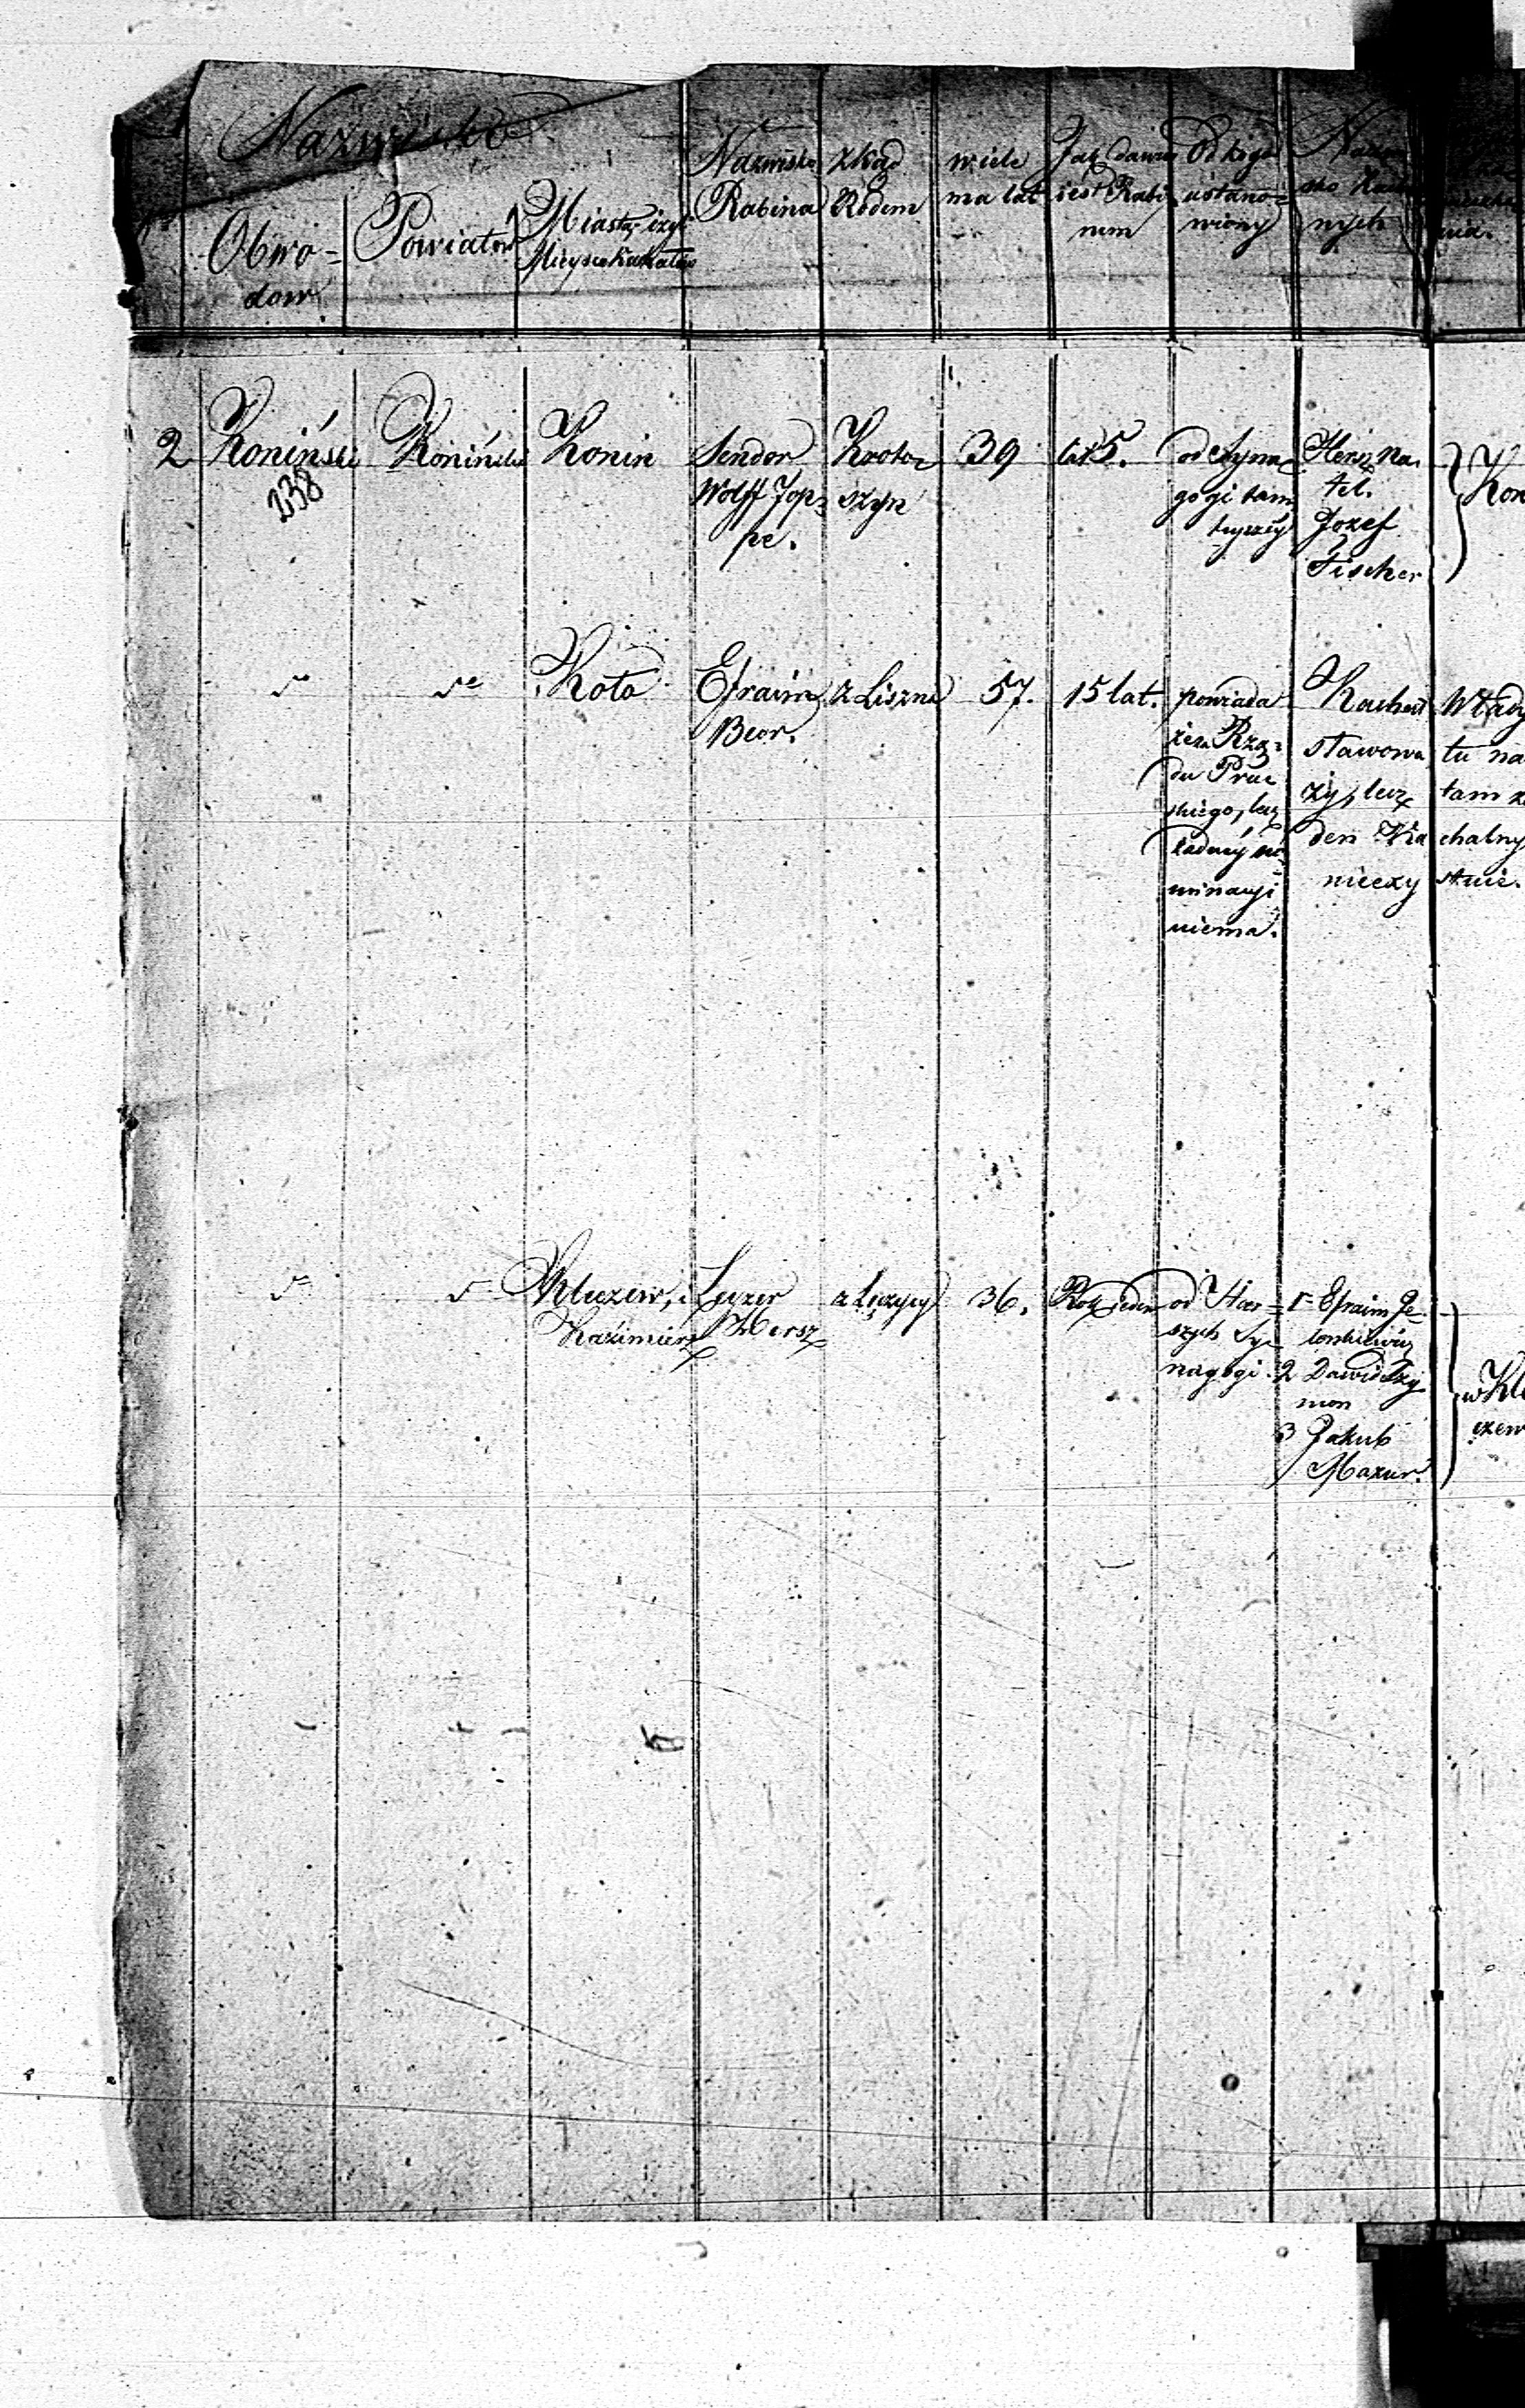 Nazwisko
Obwo=
dow
Powiatow
Miasta czyli
Mieysca Kahałów
Nazwisko
Rabina
Zkąd
Rodem
wiele
ma lat
Jak dawno
iest Rabi
nem
Od kogo
ustano=
wiony
Nazwi
sko
nych
2 Koniński Koniński Konin
238
Sendor
Wolff Jop=
pe.
Kroto=
szyn
39
lat 5.
od Syna
gogi tam
tejszey
Hersz Na.
tel.
Jozef
Fischer
Kon
Koło
Efraim
Beer.
z Liszna
57.
15 lat.
powiada
że za Rzą=
du Prus
skiego, lecz
żadney no
minacyi
niema.
stawowa
ży, lecz
den
nieczy
Wlady
tu na
tam
chalny
stwie.
Kluzew, i
Kazimierz
Leyzer
Hersz
z Łęczycy
36.
Rok jeden
od Star=
szych Sy=
nagogi.
1 Efraim Je
2 Dawid Szy
mon
3 Jakub
Mazur.
w Kle
czew